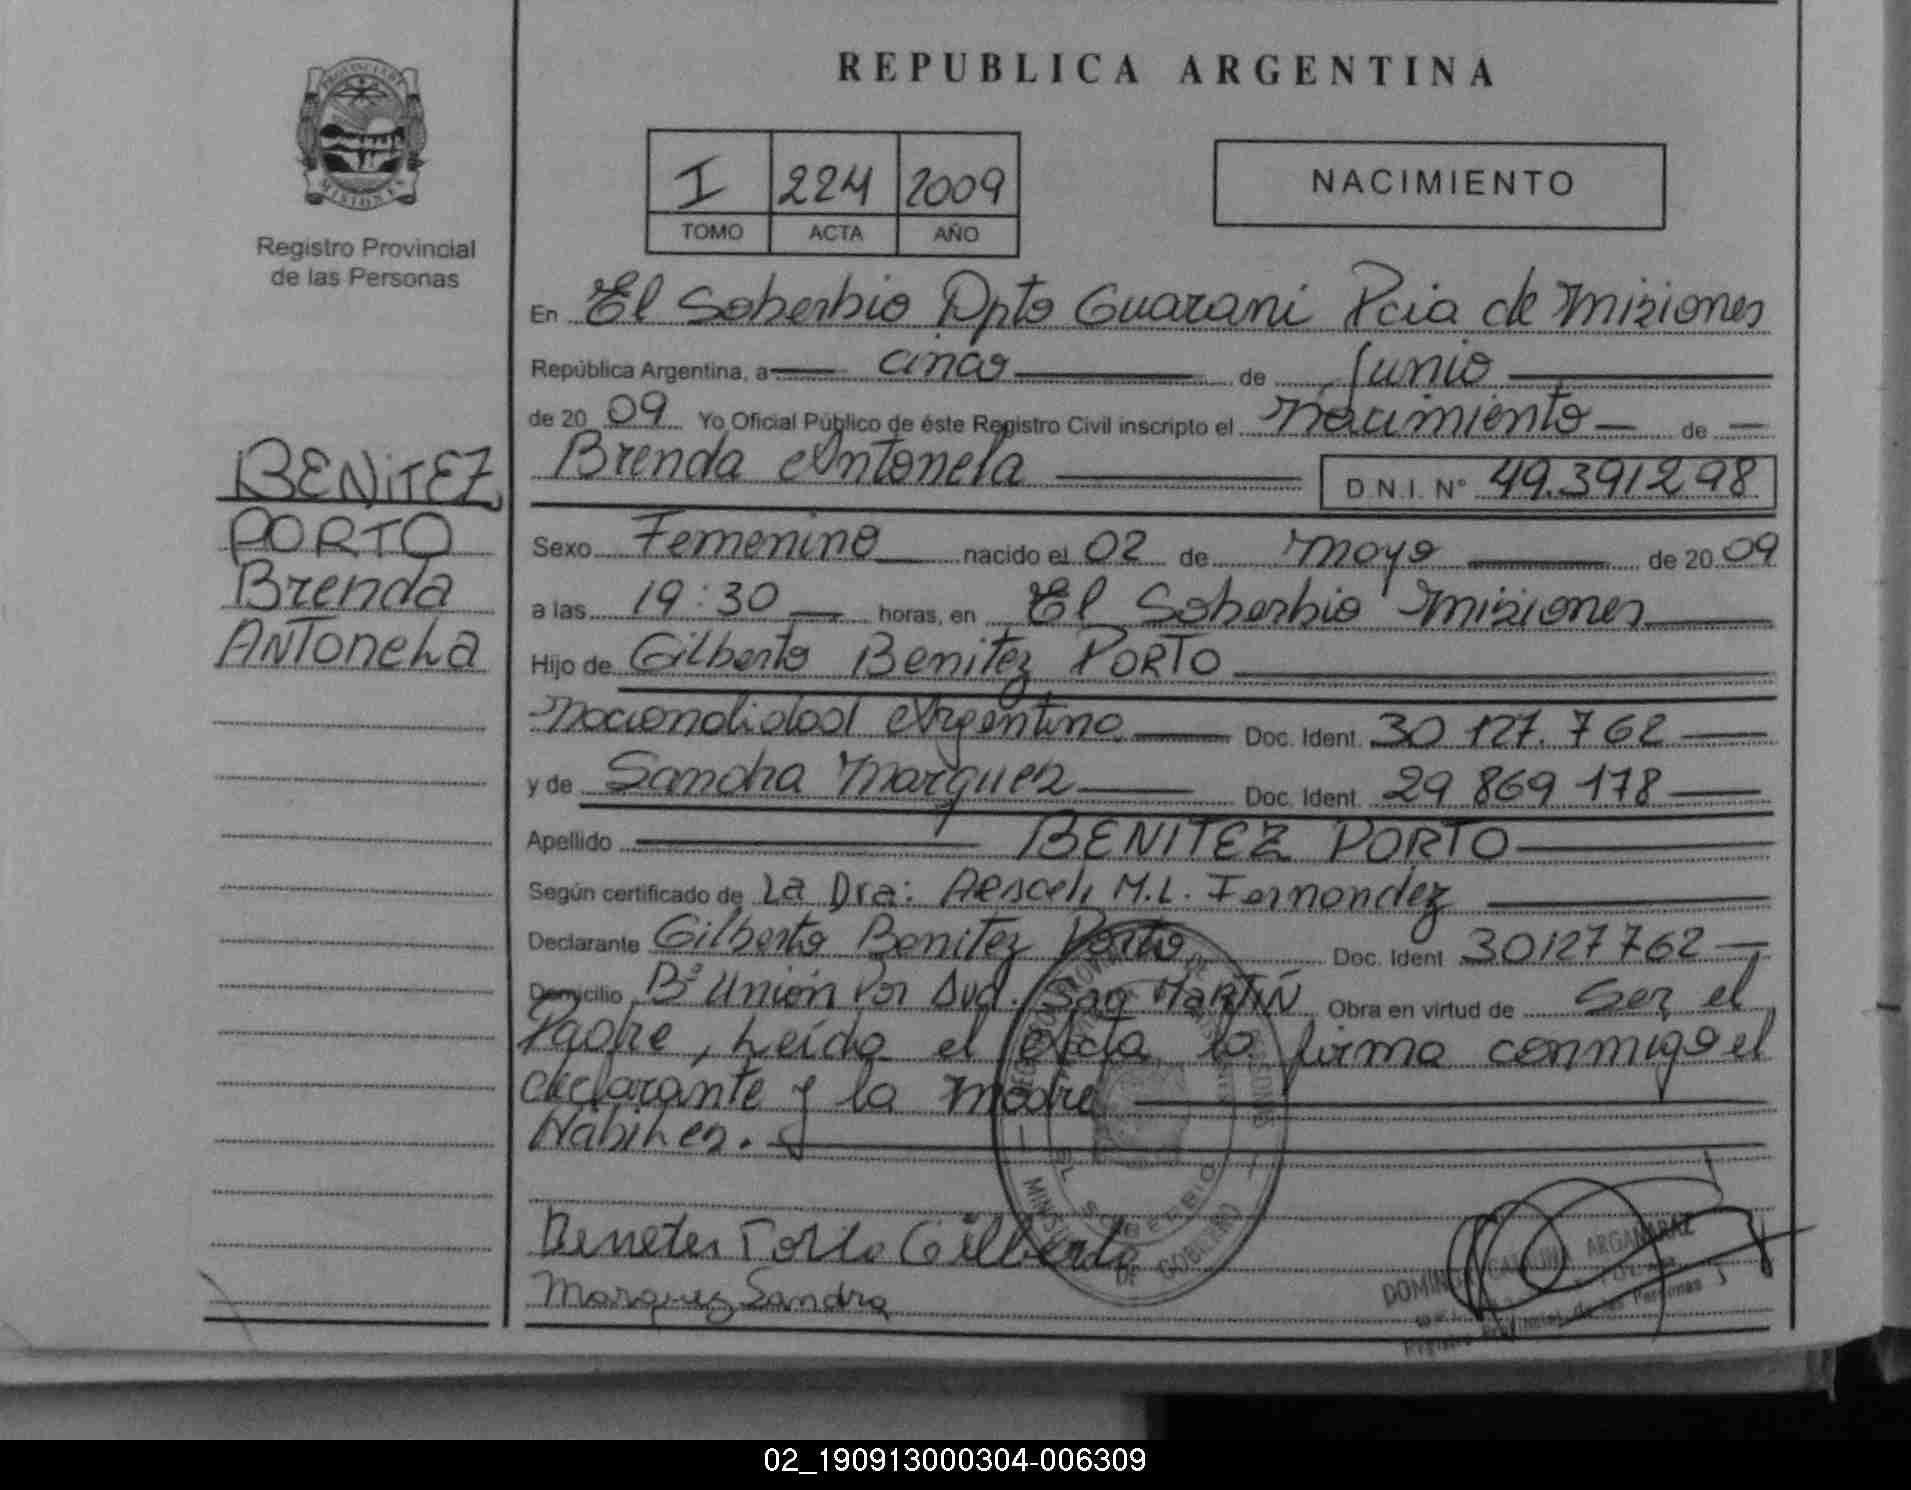 PROVINCIA DE
MISIONES
Registro Provincial
de las Personas
BENITEZ
PORTO
Brenda
Antonela
REPUBLICA ARGENTINA
I 224 2009
TOMO ACTA AÑO
NACIMIENTO
En El Soberbio Dpto Guarani Pcia de Misiones
República Argentina, a cinco de Junio
de 20 09 Yo Oficial Público de éste Registro Civil inscripto el Nacimiento de
Brenda Antonela D.N.I. Nº 49.391298
Sexo Femenino nacido el 02 de Mayo de 20 09
a las 19:30 horas, en El Soberbio Misiones
Hijo de Gilberto Benitez PORTO
Nacionalidad Argentino Doc. Ident. 30 127.762
y de Sandra Marquez Doc. Ident. 29 869 178
Apellido BENITEZ PORTO
Según certificado de La Dra: M.L. Fernandez
Declarante Gilberto Benitez Porto Doc. Ident 30127762
Domicilio Bº Unión Por Avd. San MARTIN Obra en virtud de Ser el
Padre, Leída el Acta la firma conmigo el
declarante y la Madre
EL SOBERBIO
MINISTERIO DE GOBIERNO
Benetes Porto Gilberto
Marquez Sandra
CATALINA ARGAÑARAZ
Registro Provincial de las Personas
02_190913000304-006309